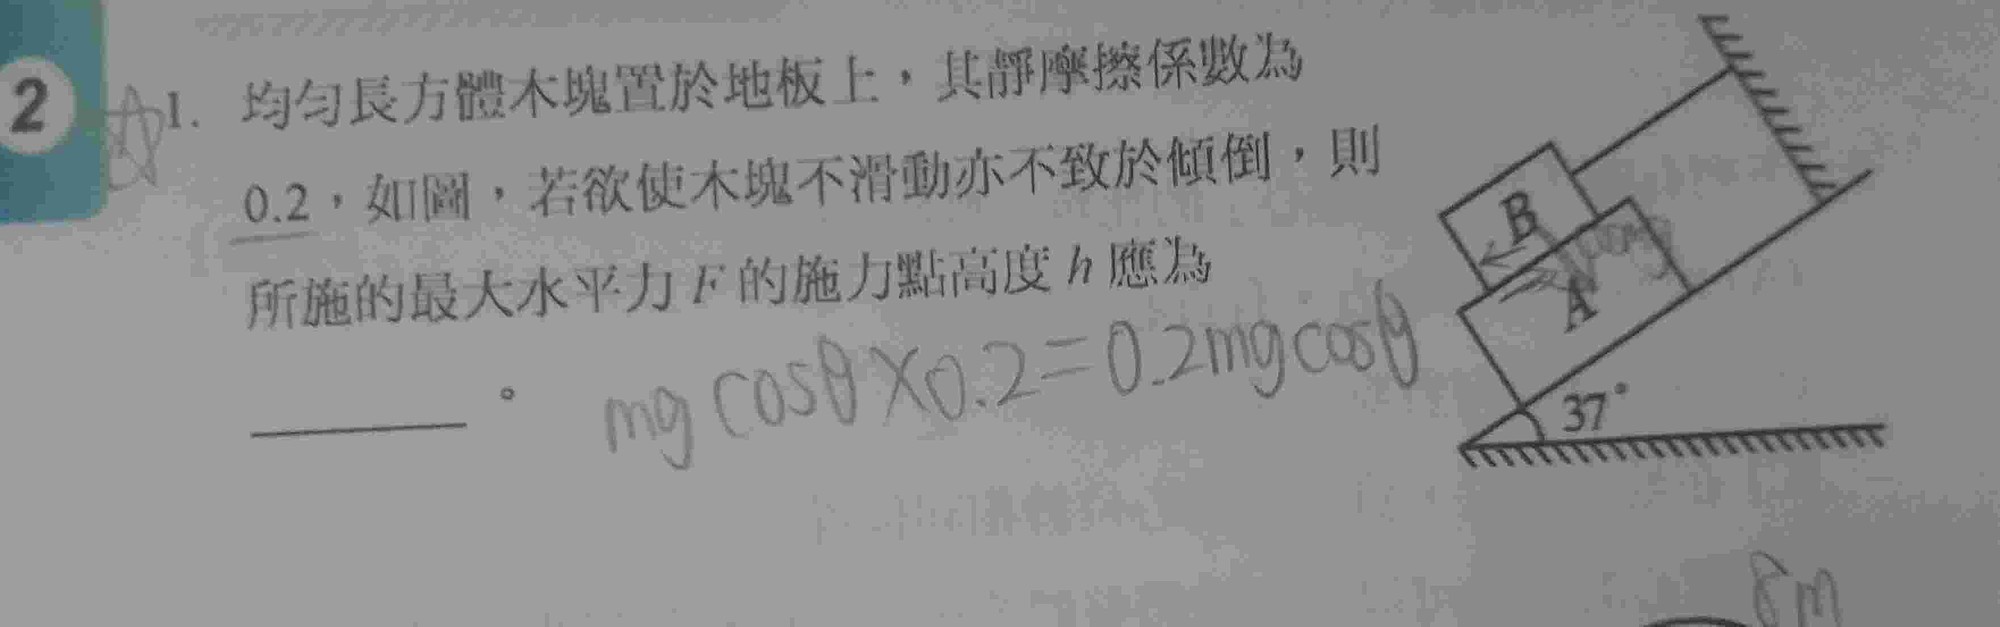 2
1. 均勻長方體木塊置於地板上，其靜摩擦係數為
0.2，如圖，若欲使木塊不滑動亦不致於傾倒，則
所施的最大水平力 F 的施力點高度 h 應為
。
mg cosθ×0.2=0.2mg cosθ
B
A
37°
8m